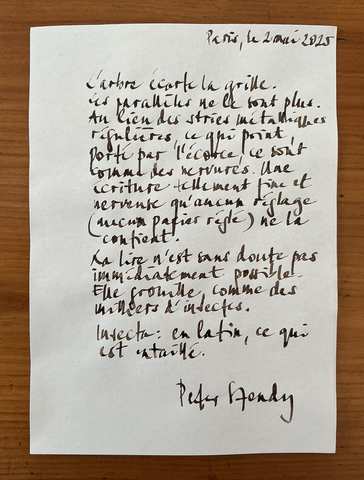 Paris, le 2 mai 2025
L'arbre écarte la grille.
Les parallèles ne le sont plus.
Au lieu des stries métalliques
régulières, ce qui point,
porté par l'écorce, ce sont
comme des nervures. Une
écriture tellement fine et
nerveuse qu'aucun réglage
(aucun papier réglé) ne la
contient.
La lire n'est sans doute pas
immédiatement possible.
Elle grouille, comme des
milliers d'insectes.
Insecta : en latin, ce qui
est entaillé.
Peter Szendy